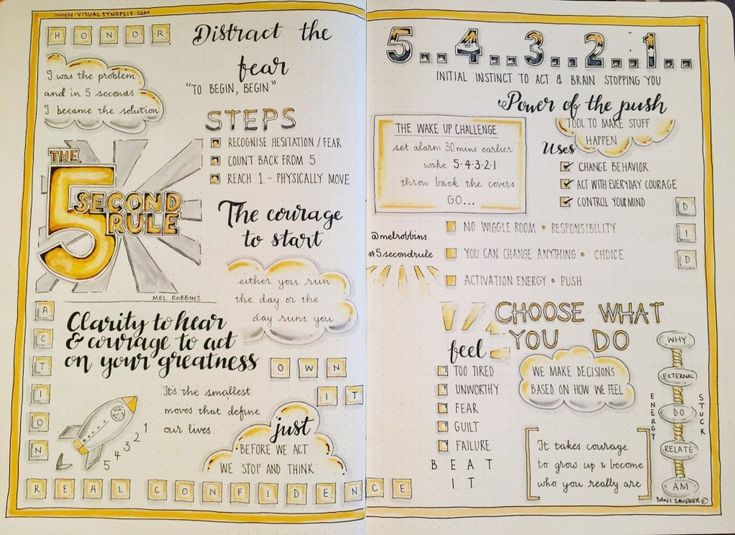 WWW.VISUALSYNOPSIS.COM
HONOR
Distract the
fear
"TO BEGIN, BEGIN"
I was the problem
and in 5 seconds
I became the solution
STEPS
RECOGNISE HESITATION / FEAR
COUNT BACK FROM 5
REACH 1 - PHYSICALLY MOVE
THE
5 SECOND
RULE
MEL ROBBINS
The courage
to start
either you run
the day or the
day runs you
Clarity to hear
& courage to act
on your greatness
ACTION
OWN
IT
It's the smallest
moves that define
our lives
5 4 3 2 1
just
BEFORE WE ACT
WE STOP AND THINK
REAL CONFIDENCE
5..4..3..2..1..
INITIAL INSTINCT TO ACT & BRAIN STOPPING YOU
Power of the push
TOOL TO MAKE STUFF
HAPPEN
THE WAKE UP CHALLENGE
set alarm 30 mins earlier
wake 5·4·3·2·1
throw back the covers
GO...
Uses
CHANGE BEHAVIOR
ACT WITH EVERYDAY COURAGE
CONTROL YOUR MIND
DID
@melrobbins
#5secondrule
NO WIGGLE ROOM • RESPONSIBILITY
YOU CAN CHANGE ANYTHING • CHOICE
ACTIVATION ENERGY • PUSH
CHOOSE WHAT
YOU DO
feel
TOO TIRED
UNWORTHY
FEAR
GUILT
FAILURE
BEAT
IT
WE MAKE DECISIONS
BASED ON HOW WE FEEL
It takes courage
to grow up & become
who you really are
WHY
EXTERNAL
DO
RELATE
AM
ENERGY
STUCK